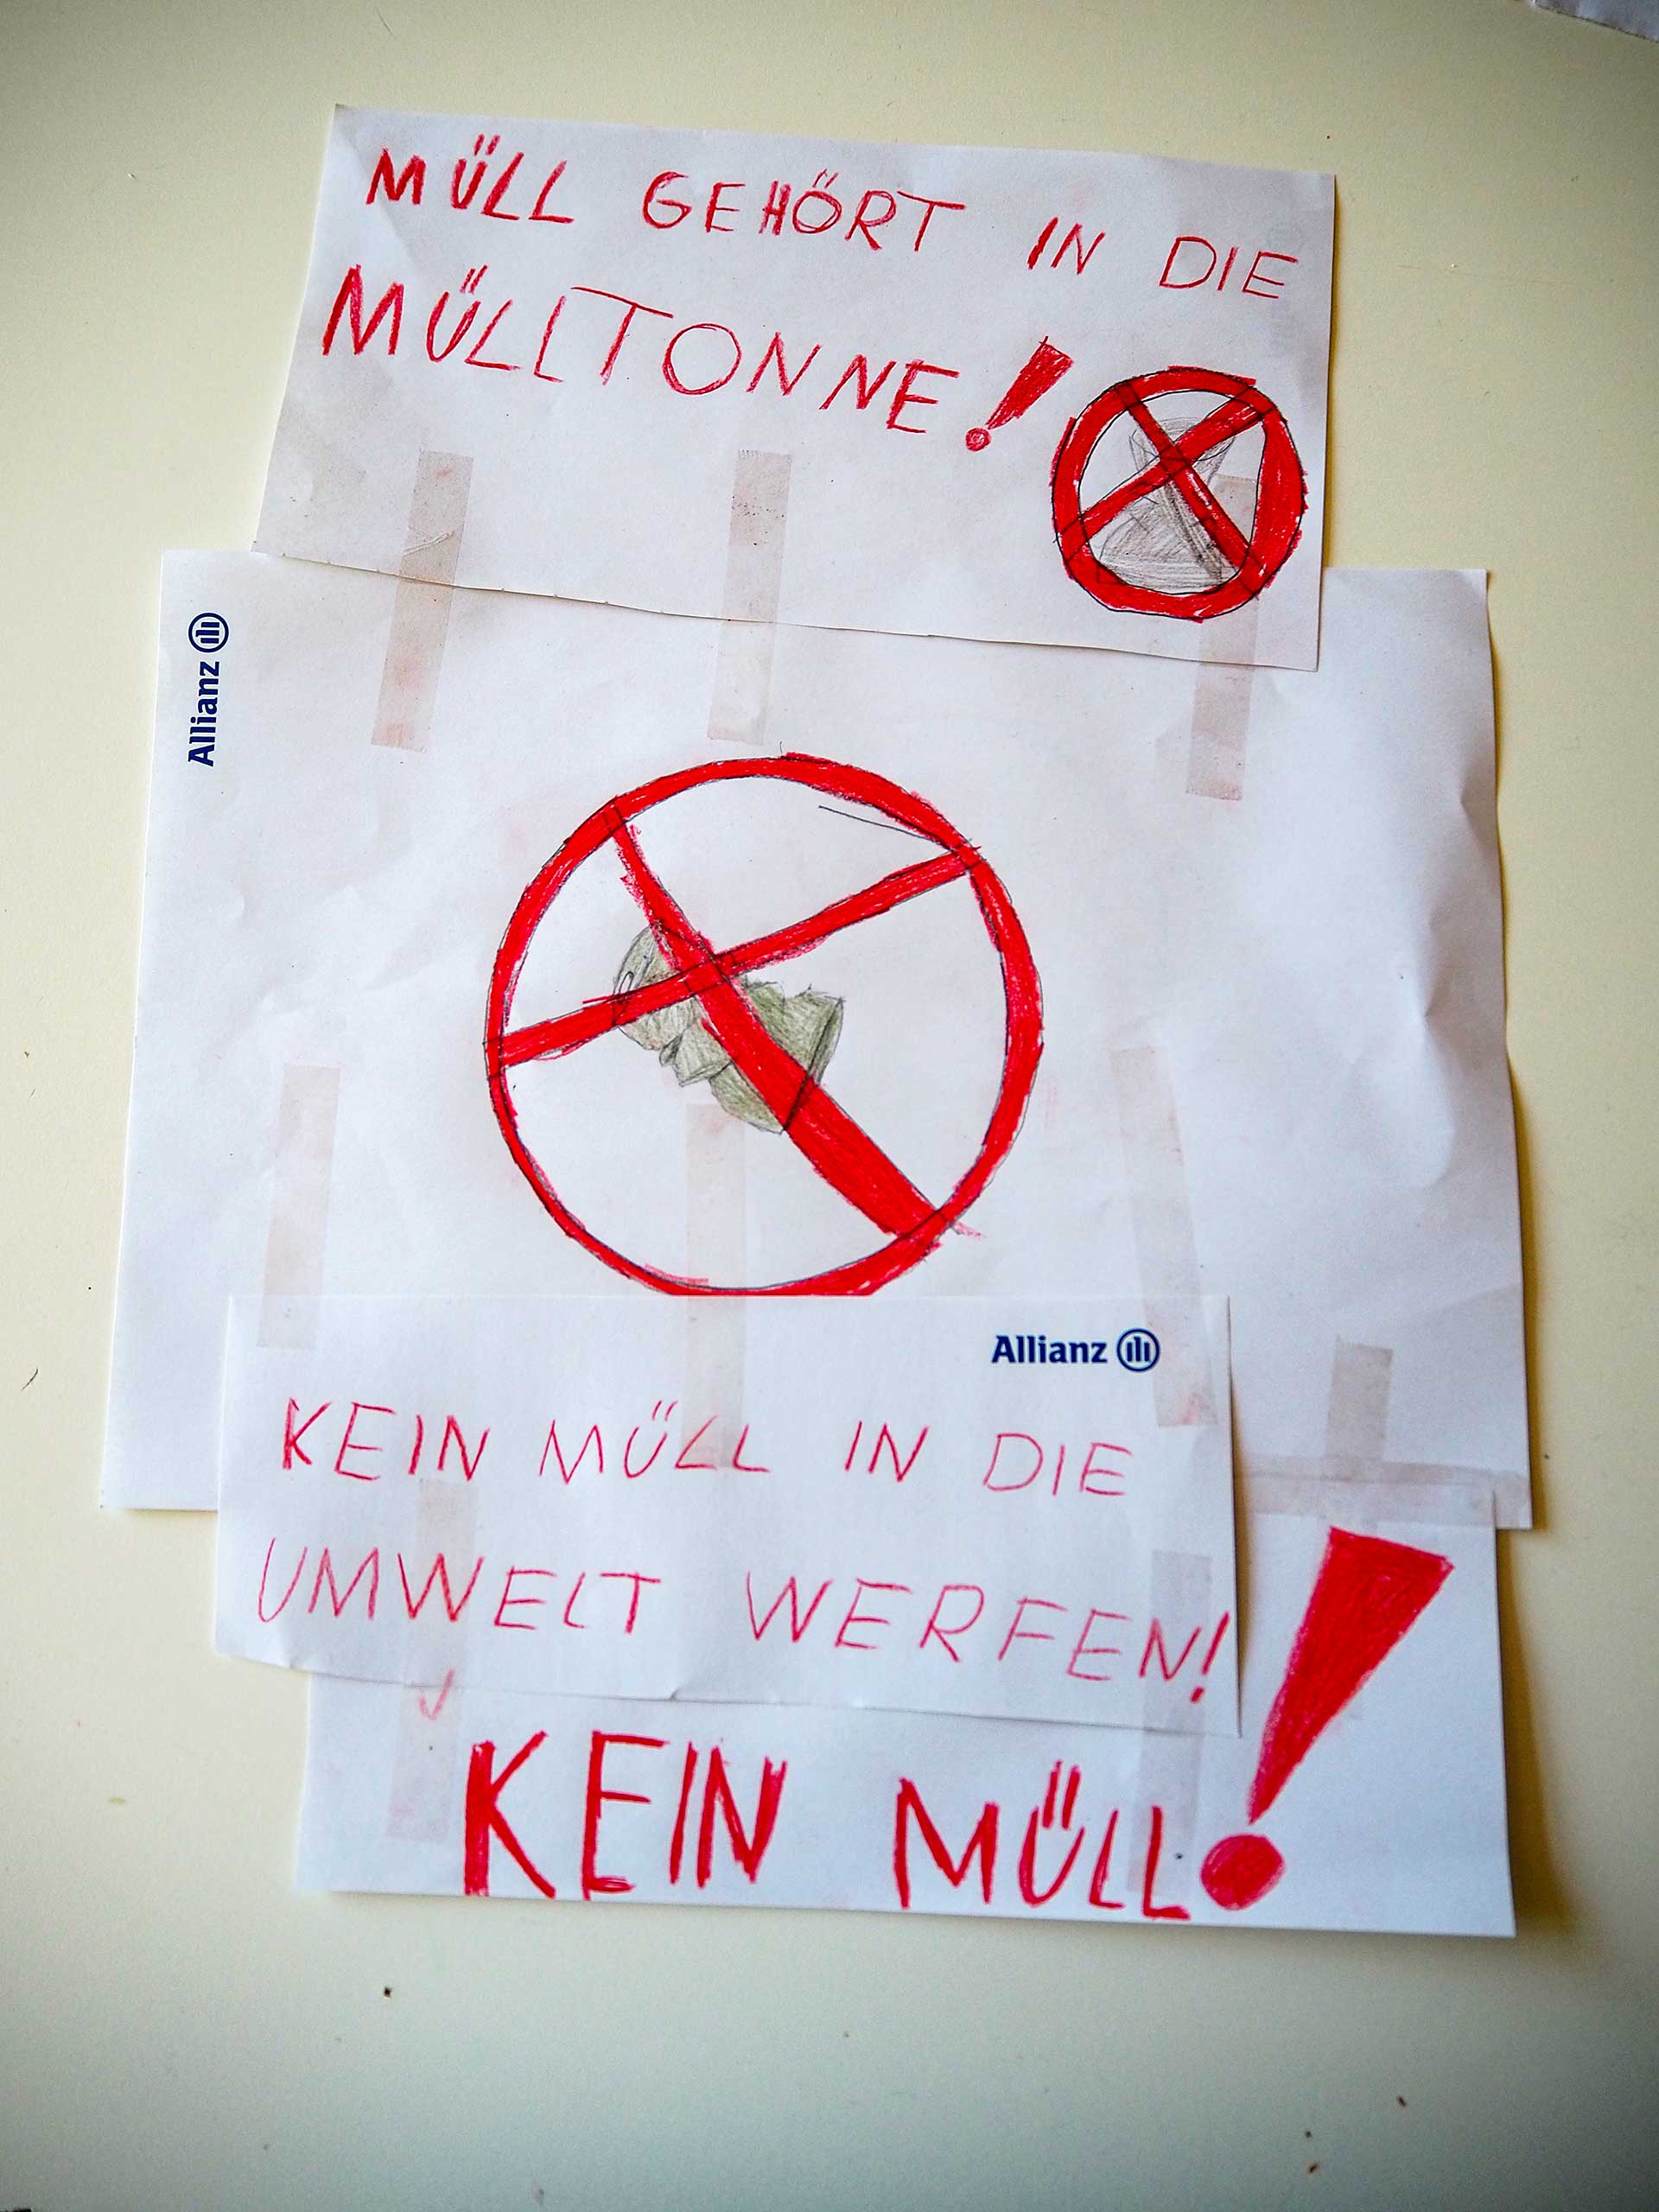 MÜLL GEHÖRT IN DIE
MÜLLTONNE!
Allianz
Allianz
KEIN MÜLL IN DIE
UMWELT WERFEN!
KEIN MÜLL!